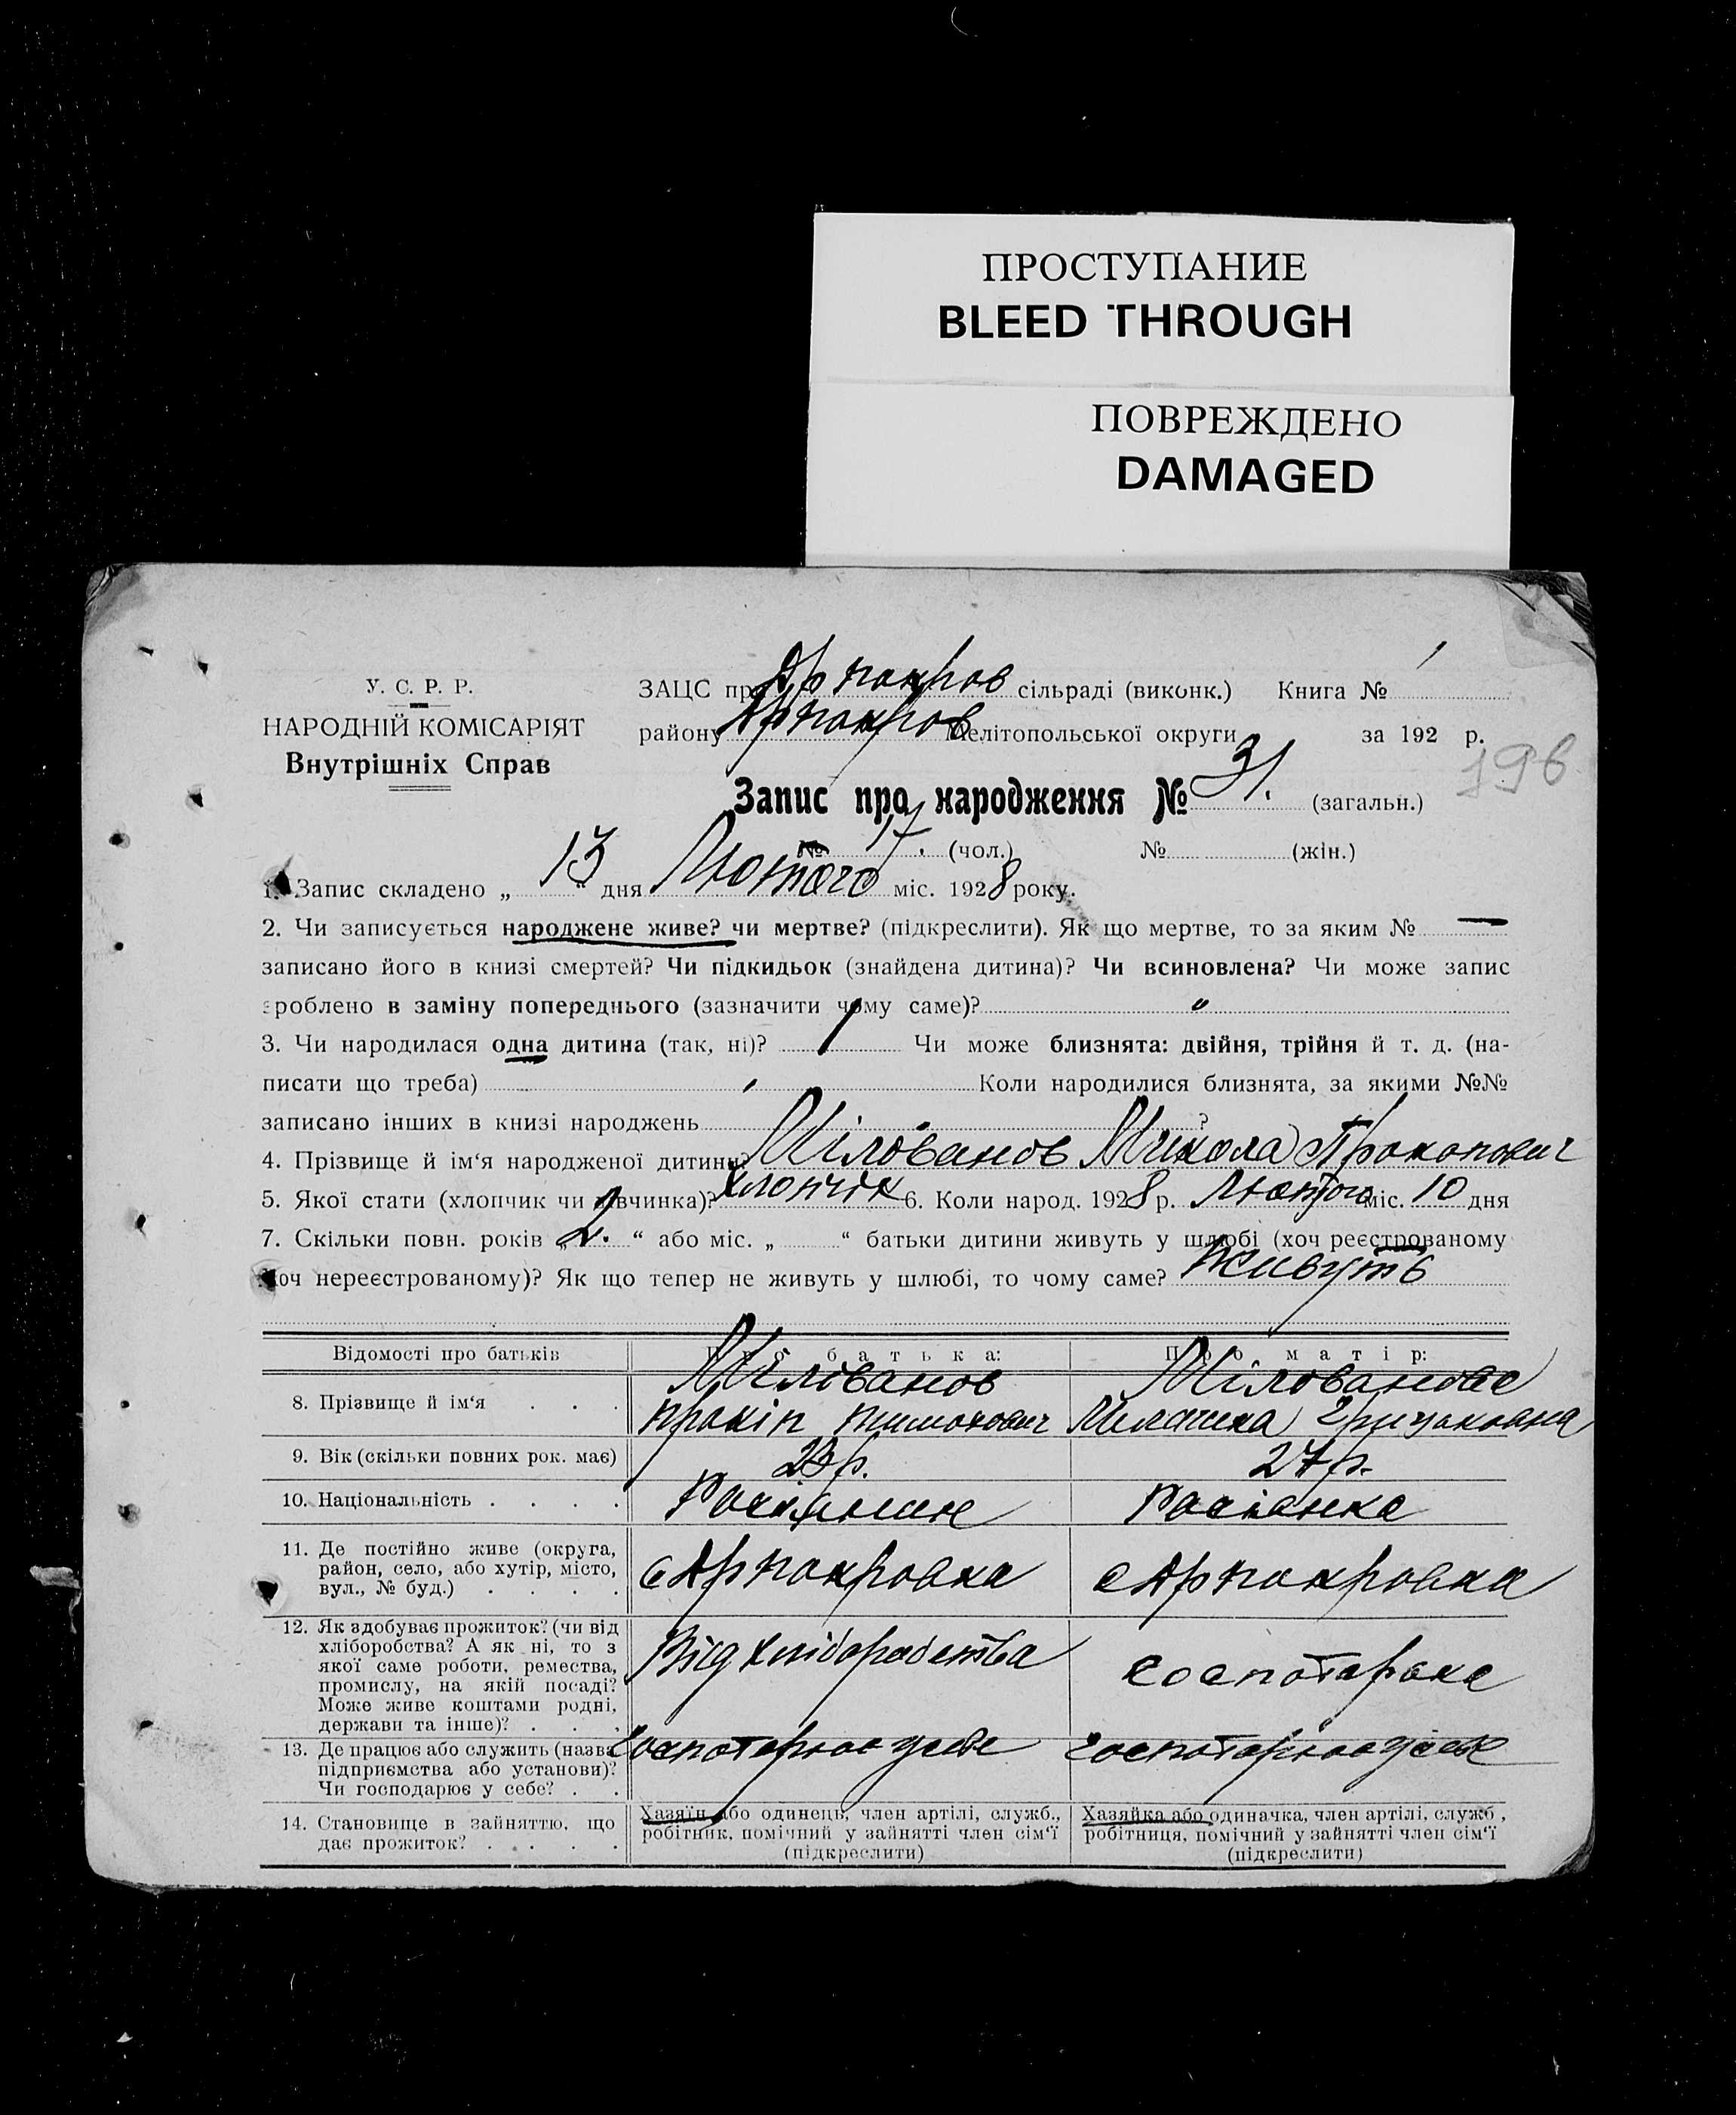 ПРОСТУПАНИЕ
BLEED THROUGH
ПОВРЕЖДЕНО
DAMAGED
У. С. Р. Р.
НАРОДНІЙ КОМІСАРІЯТ
Внутрішніх Справ
ЗАЦС при Арпокров сільраді (виконк.) Книга № 1
району Арпокров Мелітопольської округи за 192 р.
196
Запис про народження № 31. (загальн.)
№ 17. (чол.) № (жін.)
1. Запис складено „ 13 “ дня Лютого міс. 1928 року.
2. Чи записується народжене живе? чи мертве? (підкреслити). Як що мертве, то за яким № —
записано його в книзі смертей? Чи підкидьок (знайдена дитина)? Чи всиновлена? Чи може запис
зроблено в заміну попереднього (зазначити чому саме)? "
3. Чи народилася одна дитина (так, ні)? Чи може близнята: двійня, трійня й т. д. (на-
писати що треба) Коли народилися близнята, за якими №№
записано інших в книзі народжень ?
4. Прізвище й ім‘я народженої дитини? Мілованов Микола Прокопович
5. Якої стати (хлопчик чи дівчинка)? Хлопчік 6. Коли народ. 1928 р. Лютого міс. 10 дня
7. Скільки повн. років „ 2. “ або міс. „ “ батьки дитини живуть у шлюбі (хоч реєстрованому
хоч нереєстрованому)? Як що тепер не живуть у шлюбі, то чому саме? Живуть
Відомості про батьків Про батька: Про матір:
8. Прізвище й ім‘я . . . Мілованов Мілованова
прокіп тимохович Грицаковна
9. Вік (скільки повних рок. має) 23 р. 27 р.
10. Національність . . . . Росіянин Росіянка
11. Де постійно живе (округа,
район, село, або хутір, місто,
вул., № буд.) . . . . с Арпокровка с Арпокровка
12. Як здобуває прожиток? (чи від
хліборобства? А як ні, то з
якої саме роботи, ремества,
промислу, на якій посаді?
Може живе коштами родні,
держави та інше)? . . . Від хліборобства госпотарка
13. Де працює або служить (назва
підприємства або установи)?
Чи господарює у себе? . .
14. Становище в зайняттю, що
дає прожиток? . . . .
Хазяїн або одинець, член артілі, служб.,
робітник, помічний у зайнятті член сім‘ї
(підкреслити)
Хазяйка або одиначка, член артілі, служб.,
робітниця, помічний у зайнятті член сім‘ї
(підкреслити)